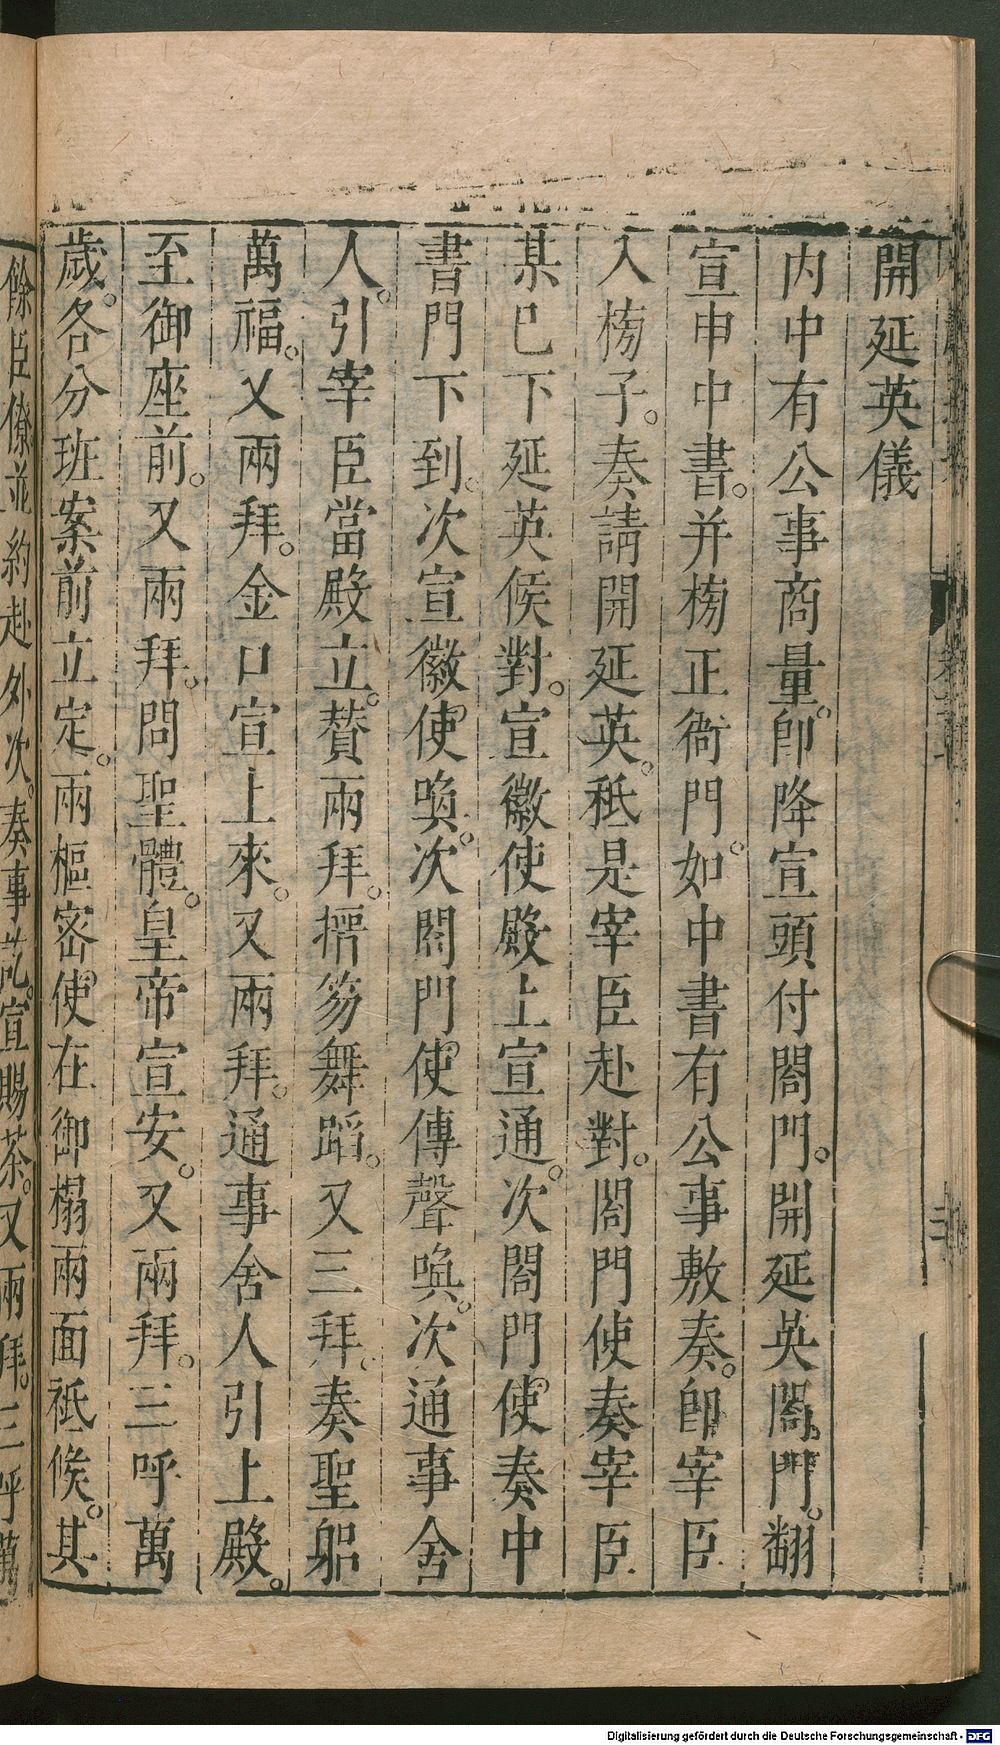 開延英儀
内中有公事商量。卽降宣頭付閤門。開延英閤門。翻
宣申中書。并牓正衙門。如中書有公事敷奏。卽宰臣
入牓子。奏請開延英。秪是宰臣赴對。閤門使奏宰臣
某已下延英候對。宣徽使殿上宣通。次閤門使奏中
書門下到。次宣徽使喚。次閤門使傳聲喚。次通事舍
人。引宰臣當殿立。贊兩拜。搢笏舞蹈。又三拜。奏聖躬
萬福。又兩拜。金口宣上來。又兩拜。通事舍人引上殿。
至御座前。又兩拜。問聖體。皇帝宣安。又兩拜。三呼萬
歲。各分班案前立定。兩樞密使在御榻兩面祗候。其
餘臣僚並約赴外次。奏事訖。宣賜茶。又兩拜。三呼萬
Digitalisierung gefördert durch die Deutsche Forschungsgemeinschaft - DFG